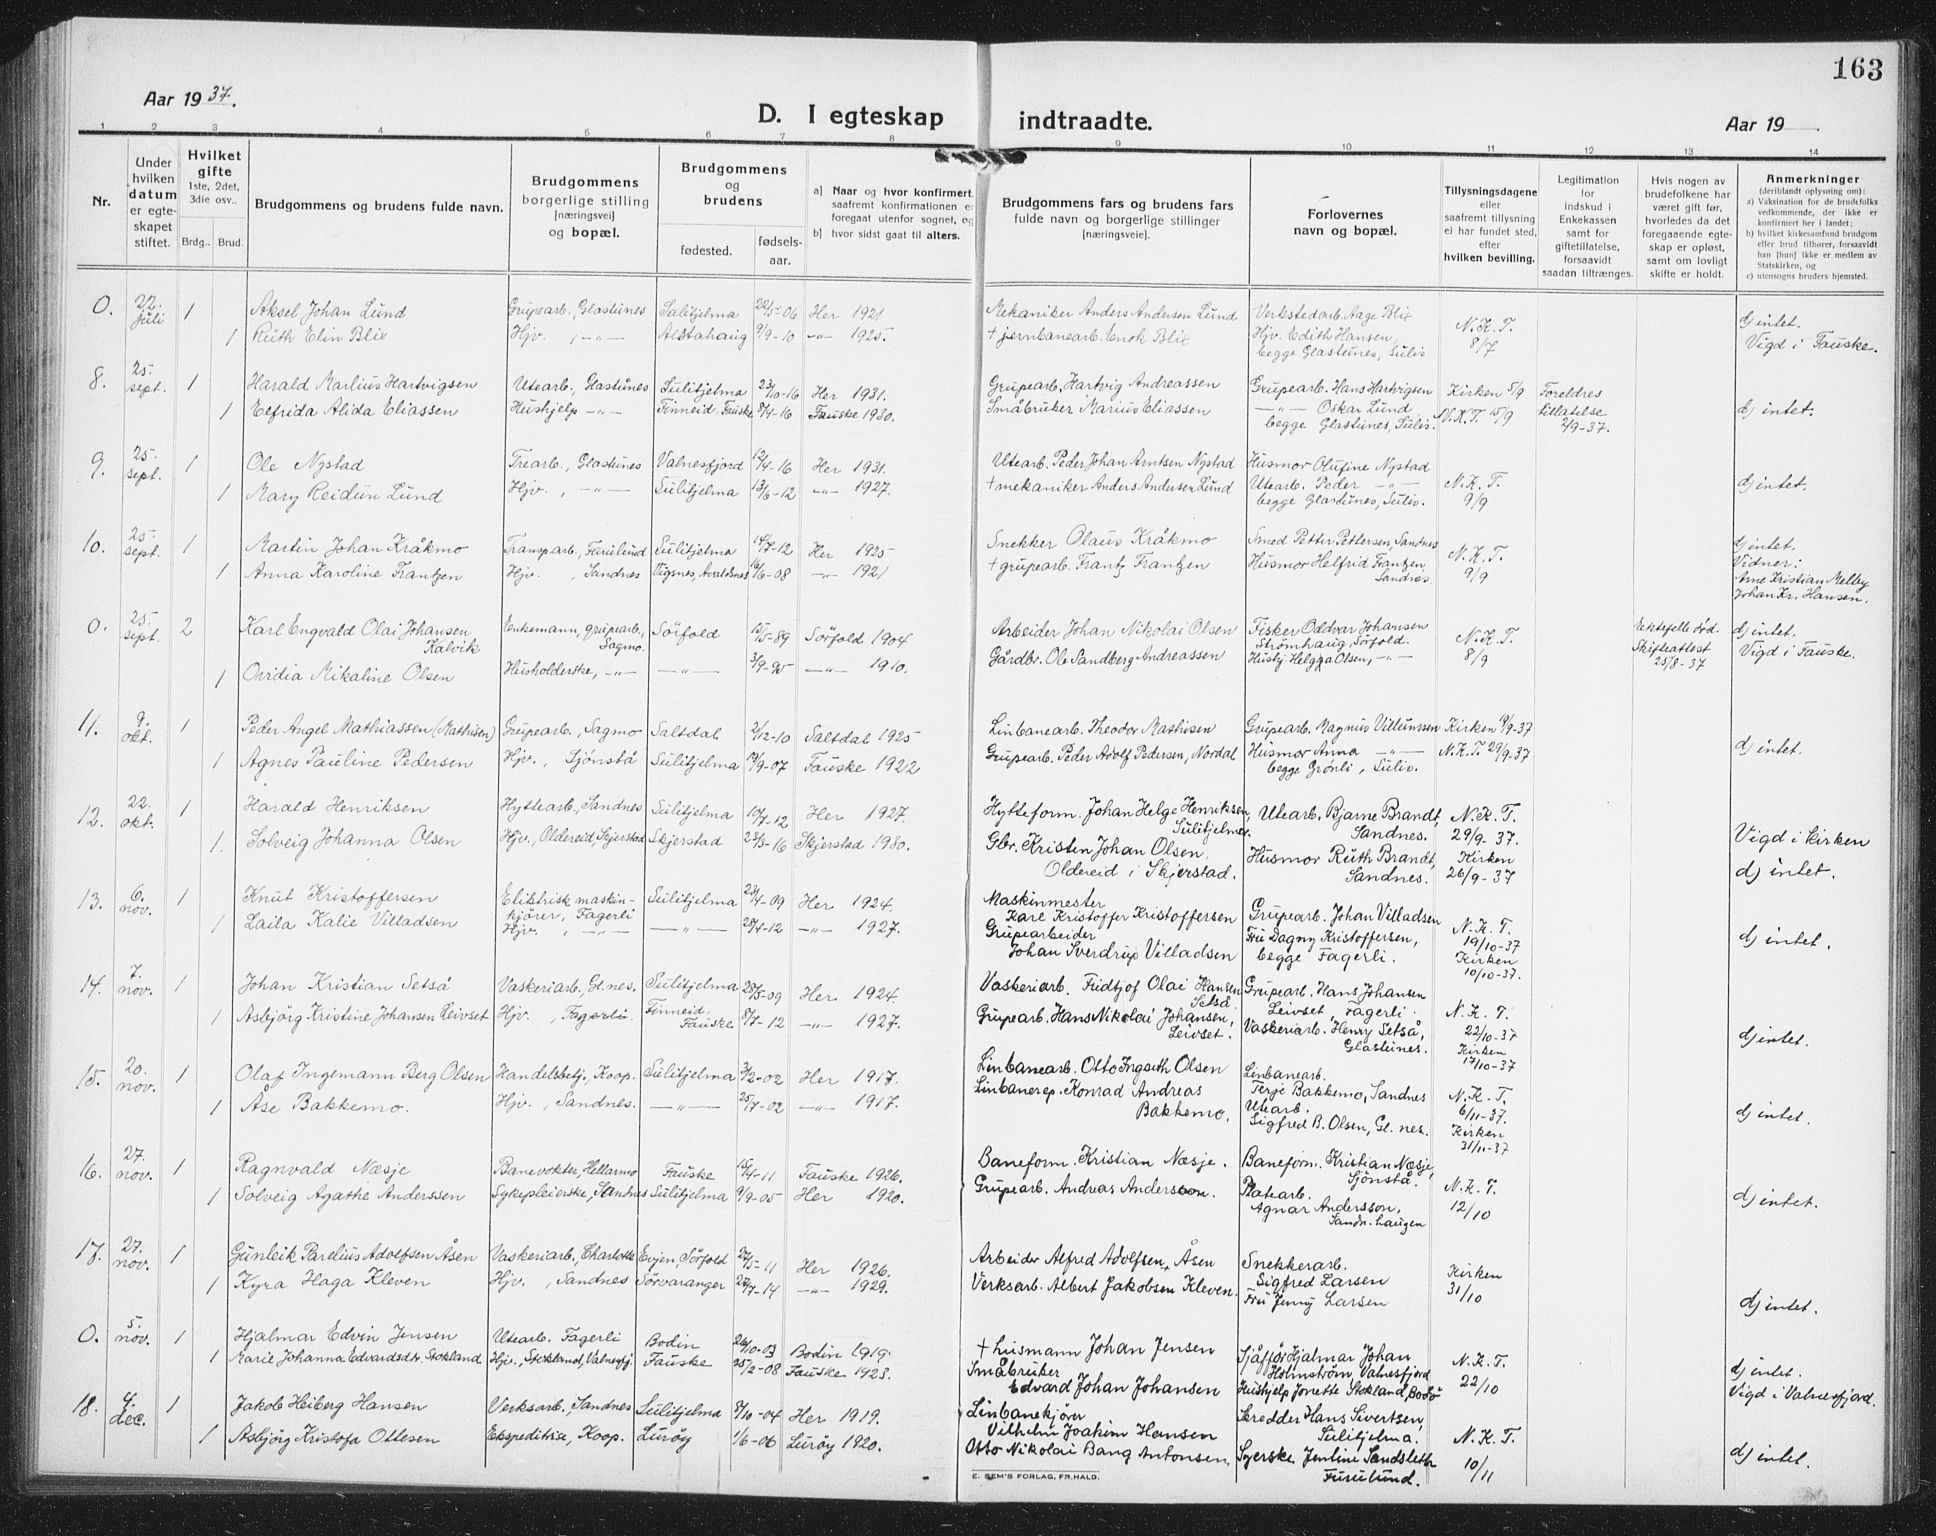 163
Aar 1937.
D. I egteskap indtraadte.
Aar 19
1 2 3 4 5 6 7 8 9 10 11 12 13 14
Nr.
Under hvilken datum er egteskapet stiftet.
Hvilket gifte
1ste, 2det, 3die osv..
Brdg.. Brud.
Brudgommens og brudens fulde navn.
Brudgommens borgerlige stilling [næringsvei] og bopæl.
Brudgommens og brudens
fødested. fødsels-aar.
a] Naar og hvor konfirmert, saafremt konfirmationen er foregaat utenfor sognet, og
b] hvor sidst gaat til alters.
Brudgommens fars og brudens fars fulde navn og borgerlige stillinger [næringsveie].
Forlovernes navn og bopæl.
Tillysningsdagene eller saafremt tillysning ei har fundet sted, efter hvilken bevilling.
Legitimation for indskud i Enkekassen samt for giftetillatelse, forsaavidt saadan tiltrænges.
Hvis nogen av brudefolkene har været gift før, hvorledes da det foregaaende egteskap er opløst, samt om lovligt skifte er holdt.
Anmerkninger
(deriblandt oplysning om):
a) Vaksination for de brudefolks vedkommende, der ikke er konfirmert her i landet;
b) hvilket kirkesamfund brudgom eller brud tilhører, forsaavidt han [hun] ikke er medlem av Statskirken, og
c) utensogns bruders hjemsted.
0. 22. juli 1 Aksel Johan Lund Grupearb., Glastunes Sulitjelma 22/5-06 Her 1921 Mekaniker Anders Andersen Lund Verkstedarb. Aage Blix N.K.T. 8/7 d) intet.
1 Ruth Elin Blix Hjv. , -"- Alstahaug 9/9-10 -"- 1925. + jernbanearb. Enok Blix Hjv. Edith Hansen, begge Glastunes, Sulis Vigd i Fauske.
8. 25. sept. 1 Harald Marlius Hartvigsen Utearb., Glastunes Sulitjelma 23/10-16 Her 1931. Grupearb. Hartvig Andreassen Grupearb. Hans Hartvigsen Kirken 5/9 Foreldres
1 Elfrida Alida Eliassen Hushjelp -"- Finneid, Fauske 8/4-16 Fauske 1930. Småbruker Marius Eliassen -"- Oskar Lund, begge Glastunes, Sulis. N.K.T. 15/9 tillatelse 2/9-37. d) intet.
9. 25. sept. 1 Ole Nystad Trearb., Glastunes Valnesfjord 12/4-16 Her 1931. Utearb. Peder Johan Arntsen Nystad Husmor Olufine Nystad
1 Mary Reidun Lund Hjv. , -"- Sulitjelma 13/6-12 -"- 1927. + mekaniker Anders Andersen Lund Utearb. Peder -"- begge Glastunes, Sulis. N.K.T. 9/9 d) intet.
10. 25. sept. 1 Martin Johan Kråkmo Transparb., Furulund Sulitjelma 14/7-12 Her 1925 Snekker Olaus Kråkmo Smed Petter Pettersen, Sandnes N.K.T. 9/9 d) intet.
1 Anna Karoline Frantzen Hjv. , Sandnes Vigsnes, Avaldsnes 16/6-08 -"- 1921 + grupearb. Frantz Frantzen Husmor Helfrid Frantzen, Sandnes. Vidner: Arne Kristian Melby Johan Kr. Hansen.
0. 25. sept. 2 Karl Engvald Olai Johansen Kalvik Enkemann, grupearb., Sagmo. Sörfold 15/5-89 Sörfold 1904 Arbeider Johan Nikolai Olsen Fisker Oddvar Johansen Strömhaug, Sörfold. N.K.T. 8/9 Ektefelle död. Skifteattest 25/8-37 d) intet. Vigd i Fauske.
1 Ovidia Mikaline Olsen Husholderske, -"- -"- 3/9-95 -"- 1910. Gårdbr. Ole Sandberg Andreassen Hushj. Helgga Olsen, -"-
11. 9. okt. 1 Peder Angel Mathiassen (Mathisen) Grupearb., Sagmo Saltdal 2/12-10 Saltdal 1925 Linbanearb. Theodor Mathisen Grupearb. Magnus Villumssen Kirken 19/9-37
1 Agnes Pauline Pedersen Hjv. , Sjönstå Sulitjelma 19/9-07 Fauske 1922 Grupearb. Peder Adolf Pedersen, Nordal Husmor Anna -"- begge Grönli, Sulis. N.K.T. 29/9-37 d) intet.
12. 22. okt. 1 Harald Henriksen Hyttearb., Sandnes Sulitjelma 10/7-12 Her 1927. Hytteform. Johan Helge Henriksen, Sulitjelma. Utearb. Bjarne Brandt, Sandnes. N.K.T. 29/9-37. Vigd i kirken
1. Solveig Johanna Olsen Hjv., Oldereid, Skjerstad Skjerstad 23/3-16 Skjerstad 1930. Gbr. Kristen Johan Olsen, Oldereid i Skjerstad. Husmor Ruth Brandt, Sandnes. Kirken 26/9-37 d) intet.
13. 6. nov. 1 Knut Kristoffersen Eliktrisk maskinkjörer, Fagerli Sulitjelma 23/4-09 Her 1924. Maskinmester Karl Kristoffer Kristoffersen Grupearb. Johan Villadsen N.K.T. 19/10-37
1 Laila Kalie Villadsen Hjv. , -"- -"- 28/4-12 -"- 1927. Grupearbeider Johan Sverdrup Villadsen Fru Dagny Kristoffersen, begge Fagerli. Kirken 10/10-37. d) intet.
14. 7. nov. 1 Johan Kristian Setså Vaskeriarb., Gl.nes. Sulitjelma 28/5-09 Her 1924. Vaskeriarb. Fridtjof Olai Hansen Setså Grupearb. Hans Johansen Leivset, Fagerli. N.K.T. 22/10-37
1 Asbjörg Kristine Johansen Leivset Hjv. , Fagerli Finneid, Fauske 8/7-12 -"- 1927. Grupearb. Hans Nikolai Johansen, Leivset. Vaskeriarb. Henry Setså, Glastunes. Kirken 17/10-37 d) intet.
15. 20. nov. 1 Olaf Ingemann Berg Olsen Handelsbetj., Koop. Sulitjelma 3/2-02 Her 1917. Linbanearb. Otto Ingseth Olsen Linbanearb. Terje Bakkemo, Sandnes N.K.T. 6/11-37.
1 Åse Bakkemo. Hjv. , Sandnes. -"- 25/7-02 -"- 1917. Linbanerep. Konrad Andreas Bakkemo. Utearb. Sigfred B. Olsen, Gl. nes. Kirken 31/11-37 d) intet.
16. 27. nov. 1 Ragnvald Næsje Banevokter, Hellarmo Fauske 15/4-11 Fauske 1926. Baneform. Kristian Næsje. Baneform. Kristian Næsje, Sjönstå. N.K.T. 12/10
1 Solveig Agathe Anderssen Sykepleierske, Sandnes Sulitjelma 9/9-05 Her 1920. Grupearb. Andreas Andersson. Platearb. Agnar Andersson, Sandn. haugen d) intet.
17. 27. nov. 1 Gunleik Parelius Adolfsen Åsen Vaskeriarb., Charlotte Evjen, Sörfold 24/5-11 Her 1926. Arbeider Alfred Adolfsen, Åsen Snekkerarb. Sigfred Larsen Kirken 31/10
1 Kyra Haga Kleven Hjv. , Sandnes Sörvaranger 23/7-14 -"- 1929. Verksarb. Albert Jakobsen Kleven. Fru Jenny Larsen d) intet.
0. 5. nov. 1 Hjalmar Edvin Jensen Utearb. Fagerli Bodin 26/10-03 Bodin 1919. + husmann Johan Jensen Sjåffør Hjalmar Johan Holmström, Valnesfjord N.K.T. 22/10 d) intet.
1 Marie Johanna Edvardsdtr. Stokland Hjv., Stokland, Valnesfj. Fauske 25/2-08 Fauske 1923. Småbruker Edvard Johan Johansen Hushjelp Jonette Stokland, Bodö Vigd i Valnesfjord.
18. 4. dec. 1 Jakob Heiberg Hansen Verksarb., Sandnes Sulitjelma 8/10-04 Her 1919. Linbanekjörer Vilhelm Joakim Hansen Skredder Hans Sivertsen, Sulitjelma. N.K.T. 10/11
1 Asbjörg Kristofa Ottesen Ekspeditrise, Koop. Luröy 1/6-06 Luröy 1920. Otto Nikolai Bang Antonsen Syerske Jentine Sandslett Furulund. d) intet.
E. SEM'S FORLAG, FR.HALD.